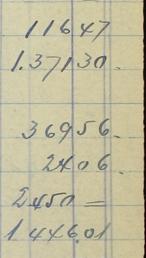 11647
1.37130.
36956.
2406.
2450=
1446.01